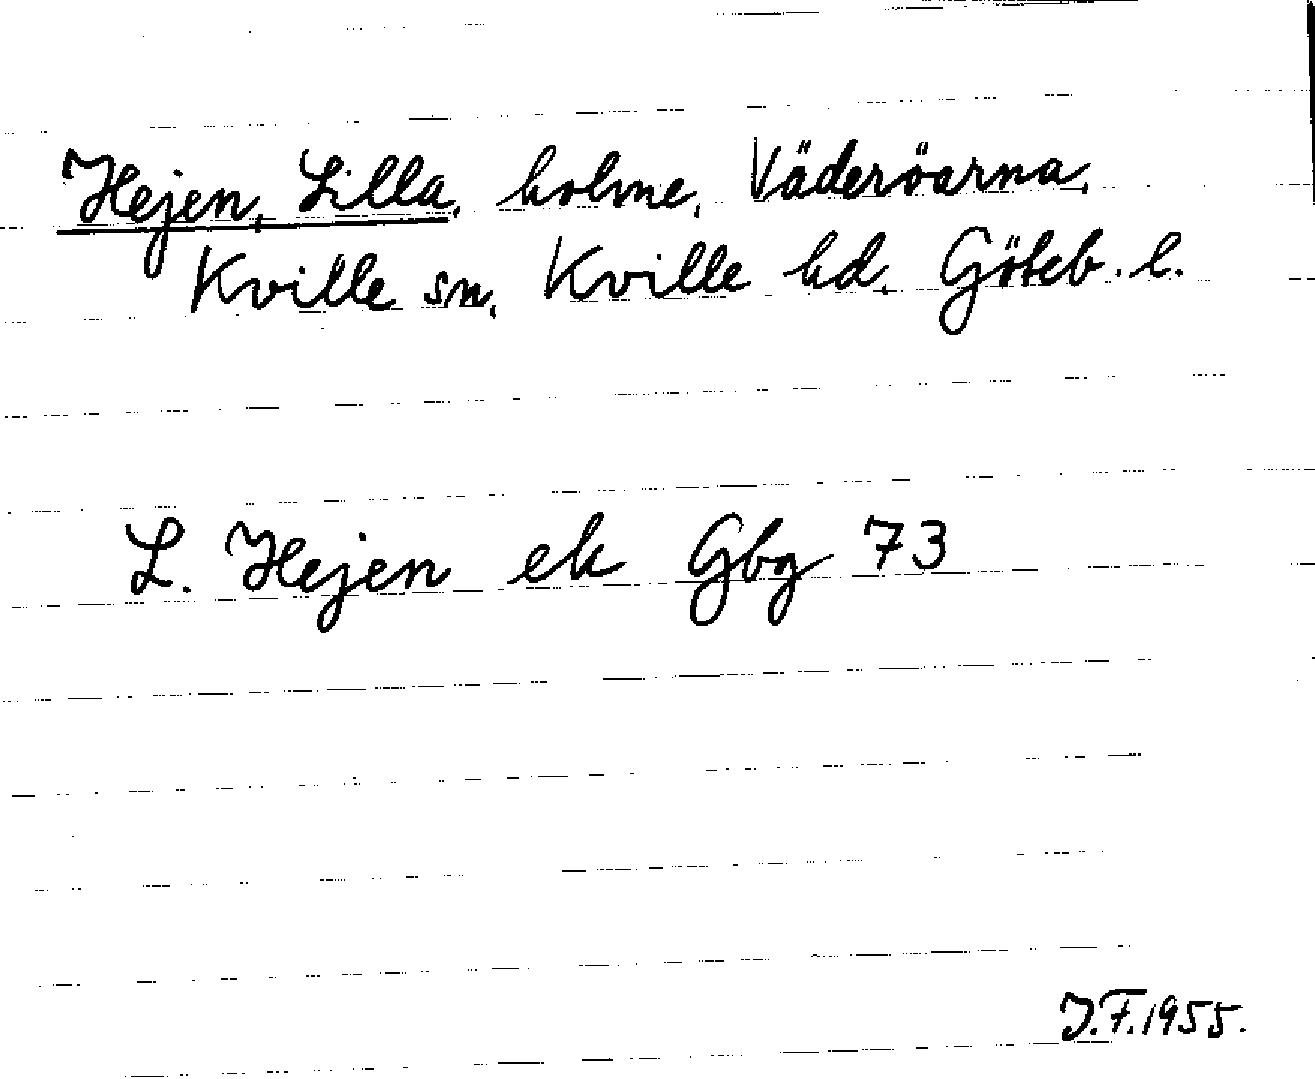 Hejen, Lilla, holme, Väderöarna,
Kville sn, Kville hd, Göteb. l.
L. Hejen ek Gbg 73
J.F. 1955.